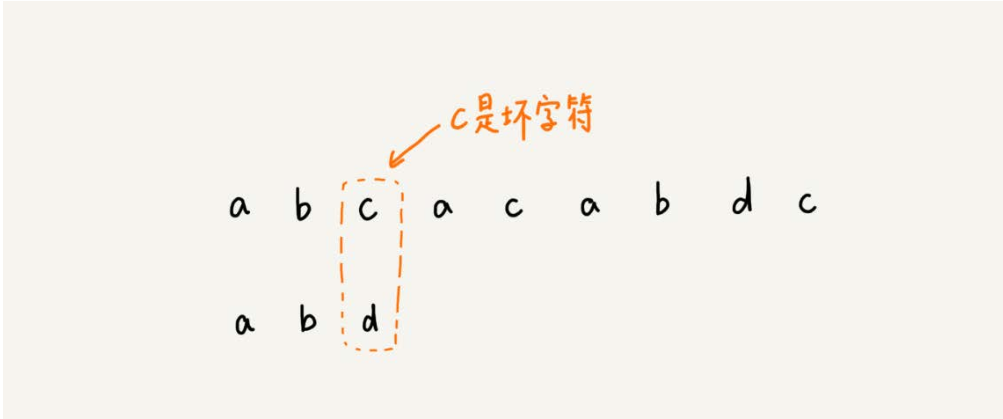 c是坏字符
a b c a c a b d c
a b d